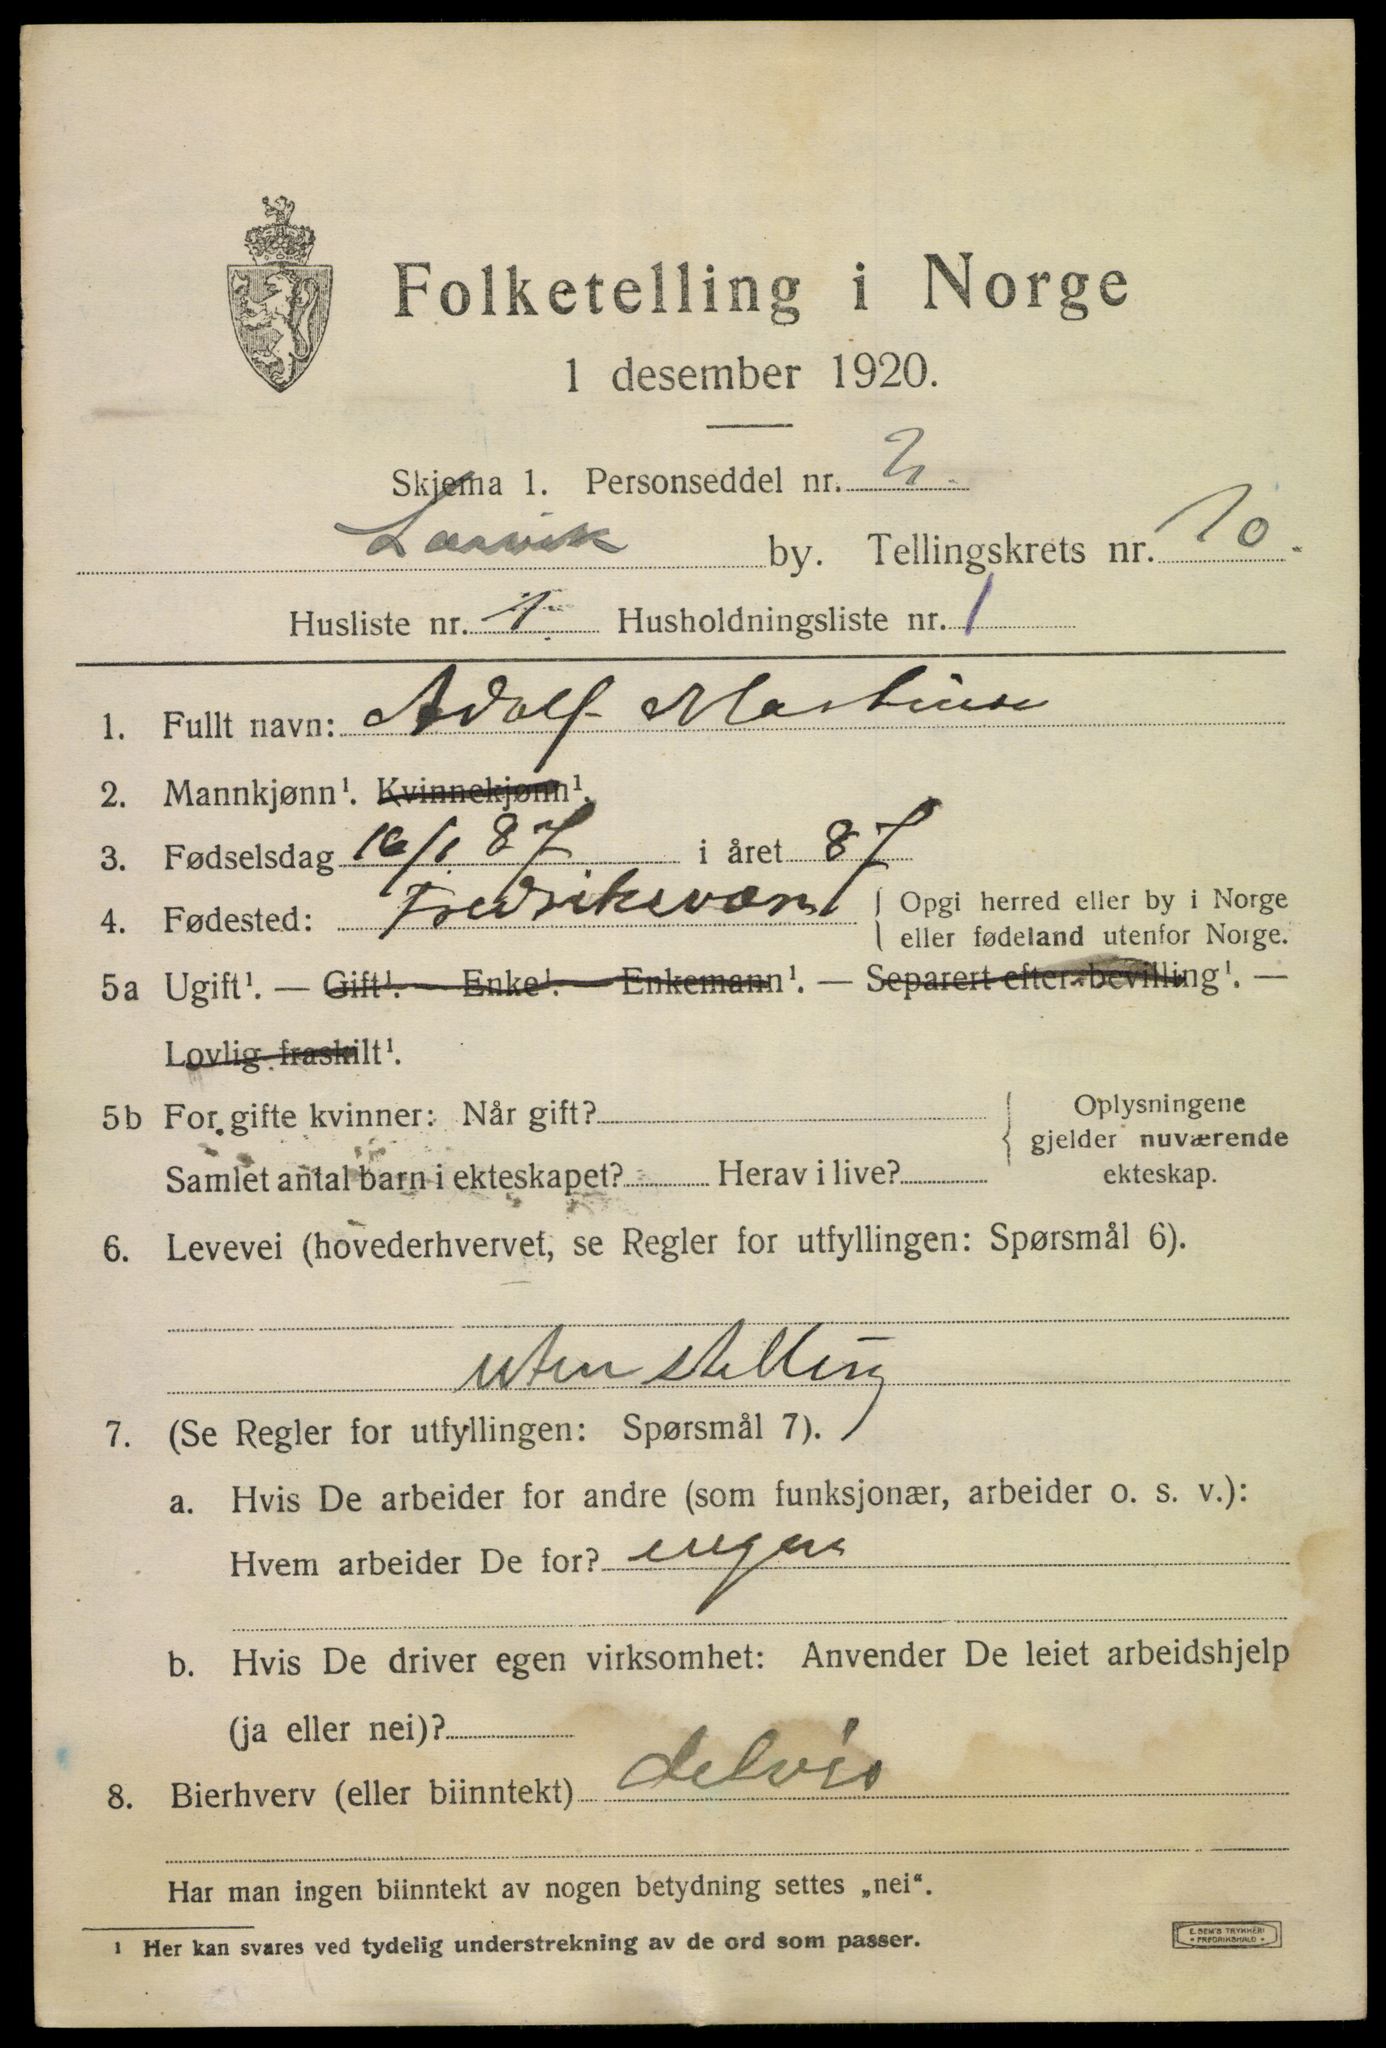 Folketelling i Norge
1 desember 1920.
Skjema 1. Personseddel nr. 2.
Larvik by. Tellingskrets nr. 10.
Husliste nr. 1 Husholdningsliste nr. 1
1. Fullt navn: Adolf Martinsen
2. Mannkjønn¹. Kvinnekjønn¹.
3. Fødselsdag 16/1 87 i året 87
4. Fødested: Fredriksværn { Opgi herred eller by i Norge
eller fødeland utenfor Norge.
5a Ugift¹. — Gift¹. — Enke¹. — Enkemann¹. — Separert efter bevilling¹. —
Lovlig fraskilt¹.
5b For gifte kvinner: Når gift? { Oplysningene
gjelder nuværende
Samlet antal barn i ekteskapet? Herav i live? ekteskap.
6. Levevei (hovederhvervet, se Regler for utfyllingen: Spørsmål 6).
uten stelling
7. (Se Regler for utfyllingen: Spørsmål 7).
a. Hvis De arbeider for andre (som funksjonær, arbeider o. s. v.):
Hvem arbeider De for? ingen
b. Hvis De driver egen virksomhet: Anvender De leiet arbeidshjelp
(ja eller nei)?
8. Bierhverv (eller biinntekt) delvis
Har man ingen biinntekt av nogen betydning settes „nei“.
¹ Her kan svares ved tydelig understrekning av de ord som passer.
E. SEM'S TRYKKERI
• FREDRIKSHALD •